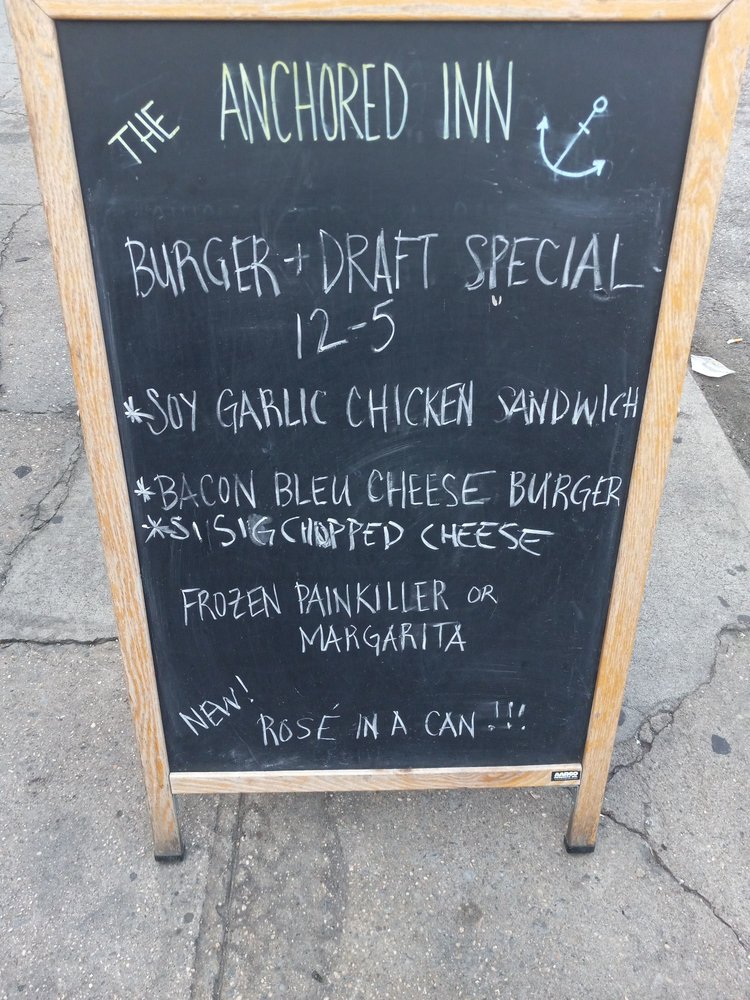 THE ANCHORED INN
BURGER + DRAFT SPECIAL
12-5
*SOY GARLIC CHICKEN SANDWICH
*BACON BLEU CHEESE BURGER
*SISIG CHOPPED CHEESE
FROZEN PAINKILLER OR
MARGARITA
NEW!
ROSÉ IN A CAN !!!